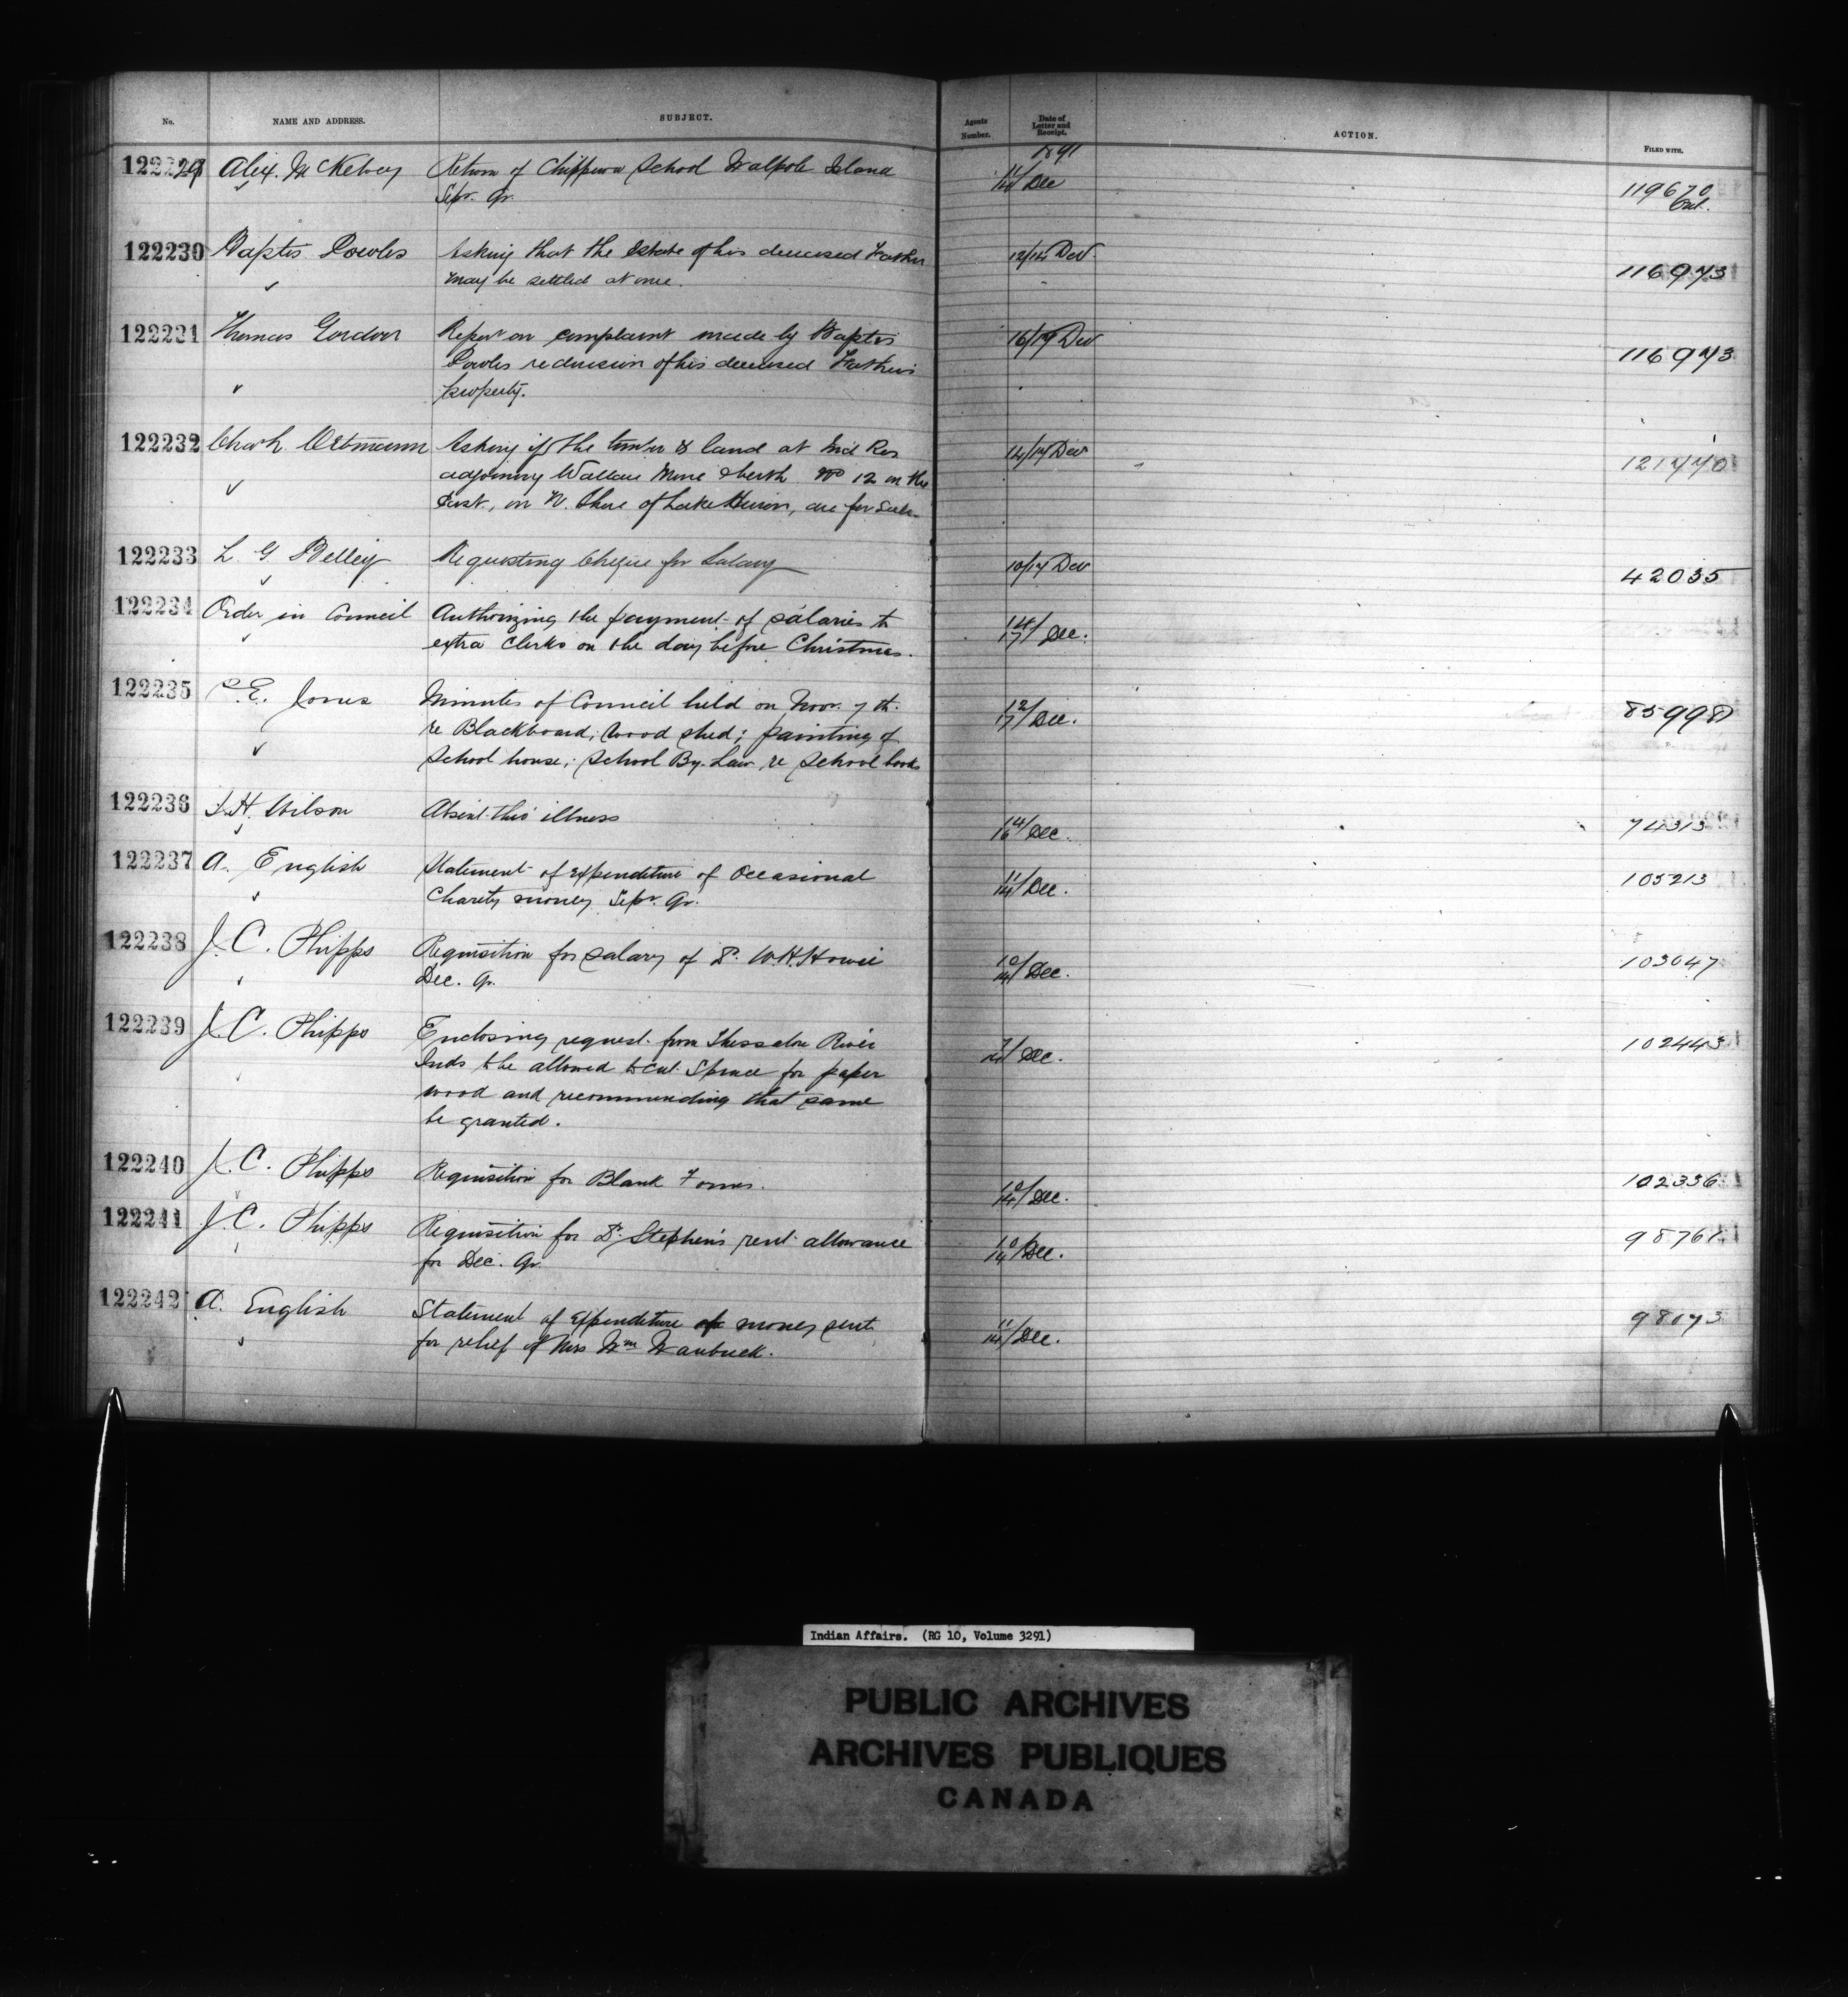 No. NAME AND ADDRESS. SUBJECT. Agents Number. Date of Letter and Receipt. ACTION. FILED WITH.
1891
122229 Alex. McKelvey Return of Chippewa School Walpole Island 11/14 Dec 119670
Sepr. Qr. Encl.
122230 Baptis Powles Asking that the Estate of his deceased Father 12/14 Dec 116973
may be settled at once.
122231 Thomas Gordon Report on complaint made by Baptis 16/17 Dec 116973
Powles re division of his deceased Father's
property.
122232 Asking if the timber & land at Ind Res 14/17 Dec 121770
adjoining Wallace Mine & berth No 12 on the
East, on N. Shore of Lake Huron, are for Sale.
122233 L. G. Belley Requesting Cheque for Salary 10/17 Dec 42035
122234 Order in Council Authorizing the payment of salaries to 14/17 Dec.
extra Clerks on the day before Christmas.
122235 P. E. Jones Minutes of Council held on Novr. 7th. 12/17 Dec. 85998
re Blackboard; Wood shed; painting of
School house; School By-Law re School books
122236 S. H. Wilson Absent thro' illness 14/16 Dec. 74313
122237 A. English Statement of expenditure of Occasional 11/14 Dec. 105213
Charity money Sepr. Qr.
122238 J. C. Phipps Requisition for salary of Dr. W. H. Howie 10/14 Dec. 103647
Dec. Qr.
122239 J. C. Phipps Enclosing request from Thessalon River 7/14 Dec. 102443
Inds to be allowed to cut Spruce for paper
wood and recommending that same
be granted.
122240 J. C. Phipps Requisition for Blank Forms. 10/14 Dec. 102336
122241 J. C. Phipps Requisition for Dr. Stephen's rent allowance 10/14 Dec. 98761
for Dec. Qr.
122242 A. English Statement of expenditure of money sent 11/14 Dec. 98173
for relief of Mrs Wm Wanbuck.
Indian Affairs. (RG 10, Volume 3291)
PUBLIC ARCHIVES
ARCHIVES PUBLIQUES
CANADA